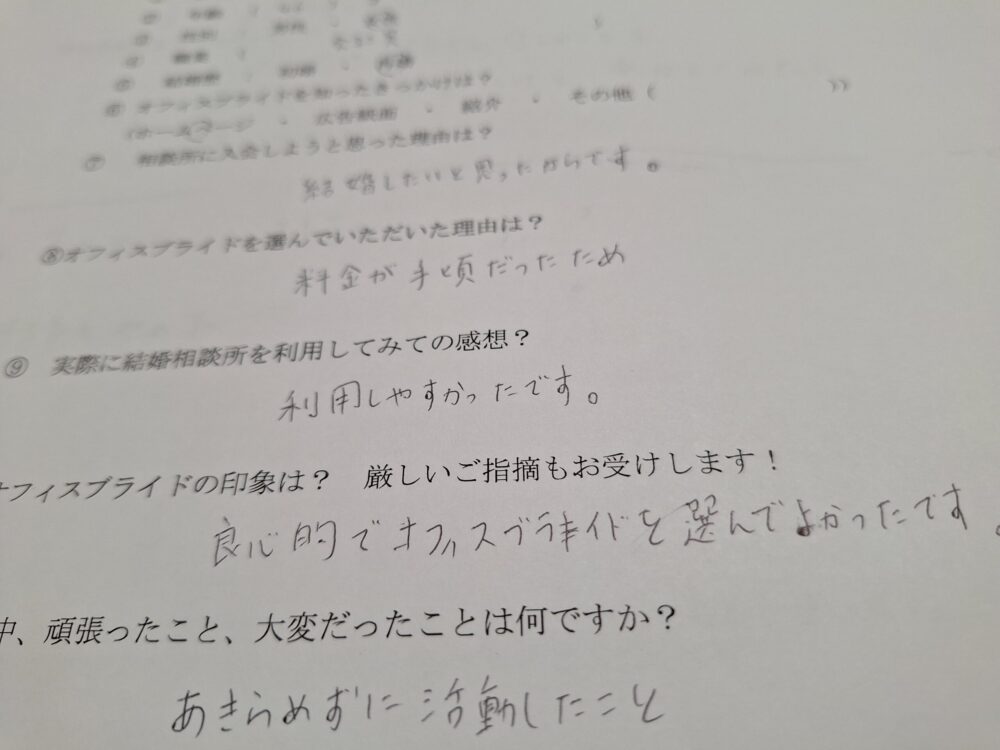 ⑥ オフィスブライドを知ったきっかけは？
(ホームページ ・ 広告紙面 ・ 紹介 ・ その他 ( ))
⑦ 相談所に入会しようと思った理由は？
結婚したいと思ったからです。
⑧オフィスブライドを選んでいただいた理由は？
料金が手頃だったため
⑨ 実際に結婚相談所を利用してみての感想？
利用しやすかったです。
オフィスブライドの印象は？ 厳しいご指摘もお受けします！
良心的でオフィスブラキイドを選んでよかったです。
中、頑張ったこと、大変だったことは何ですか？
あきらめずに活動したこと